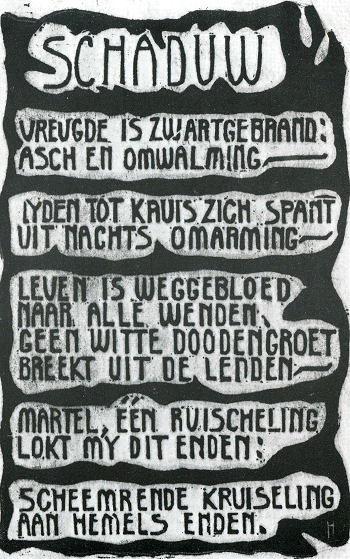 SCHADUW
VREUGDE IS ZWARTGEBRAND:
ASCH EN OMWALMING,—
LYDEN TOT KRUIS ZICH SPANT
UIT NACHTS OMARMING—
LEVEN IS WEGGEBLOED
NAAR ALLE WENDEN,
GEEN WITTE DOODENGROET
BREEKT UIT DE LENDEN—
MARTEL, EEN RUISCHELING
LOKT MY DIT ENDEN:
SCHEEMRENDE KRUISELING
AAN HEMELS ENDEN.
H